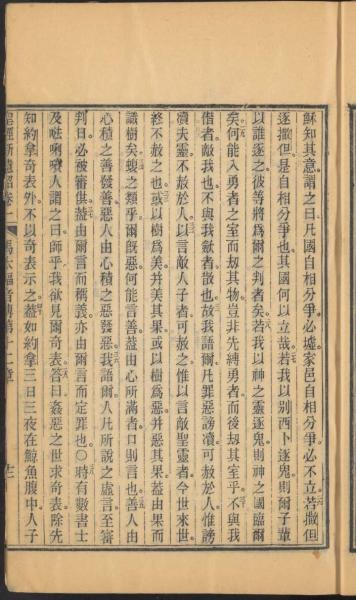 穌知其意謂之曰凡國自相分爭必墟家邑自相分爭必不立若撒但
逐撒但是自相分爭也其國何以立哉若我以別西卜逐鬼則爾子輩
以誰逐之彼等將為爾之判者矣若我以神之靈逐鬼則神之國臨爾
矣何能入勇者之室而刼其物豈非先縛勇者而後刼其室乎不與我
偕者敵我也不與我歛者散也故我語爾凡罪惡謗瀆可赦於人惟謗
瀆夫靈不赦於人以言敵人子者可赦之惟以言敵聖靈者今世來世
終不赦之也或以樹為美并美其果或以樹為惡并惡其果蓋由果而
識樹矣蝮之類乎爾旣惡何能言善蓋由心所滿者口則言也善人由
心積之善發善惡人由心積之惡發惡我語爾人凡所說之虛言至審
判日必被審供蓋由爾言而稱義亦由爾言而定罪也○時有數書士
及𠵽唎㘔人謂之曰師乎我欲見爾奇表答曰姦惡之世求奇表除先
知約拿奇表外不以奇表示之蓋如約拿三日三夜在鯨魚腹中人子
聖經新遺詔卷一 馬太福音傳第十二章